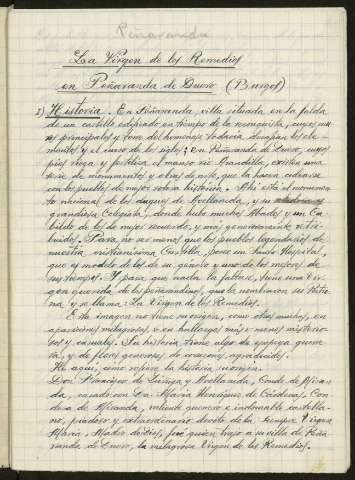 Peñaranda
La Virgen de los Remedios
en Peñaranda de Duero (Burgos)
1) Historia. En Peñaranda, villa situada en la falda
de un castillo edificado en tiempo de la reconquista, cuyos mu-
ros principales y torre del homenaje todavía desafían los ele-
mentos y el curso de los siglos; en Peñaranda de Duero, cuyos
pies riega y fertiliza el manso río Arandilla, existen una
serie de monumentos y obras de arte, que la hacen codearse
con los pueblos de mejor solera histórica. Ahí está el monumen-
to nacional de los duques de Avellaneda, y su
grandiosa Colegiata, donde hubo muchos Abades y un Ca-
bildo de los de mejor recuerdo, y más generosamente retri-
buidos. Para no ser menos que los pueblos legendarios de
nuestra cristianísima Castilla, posee un Santo Hospital,
que es modelo de los de su género y uno de los mejores de
sus tiempos. Y para que nada la faltase, tiene una Vir-
gen querida de los peñarandinos, que la nombraron su Patro-
na y se llama: La Virgen de los Remedios.
Esta imagen no tiene su origen, como otras muchas, en
apariciones milagrosas, o en hallazgos más o menos misterio-
sos y casuales. Su historia tiene algo de epopeya guerre-
ra, y de flores generosas de corazones agradecidos.
He aquí, como refiere la historia su origen.
Don Francisco de Zúñiga y Avellaneda, Conde de Miran-
da, casado con Da. María Henríquez de Cárdenas, Con-
desa de Miranda, valiente guerrero e indomable castella-
no, piadoso y extraordinario devoto de la siempre Virgen
María, Madre de Dios, fué quien trajo a su villa de Peña-
randa de Duero, la milagrosa Virgen de los Remedios.